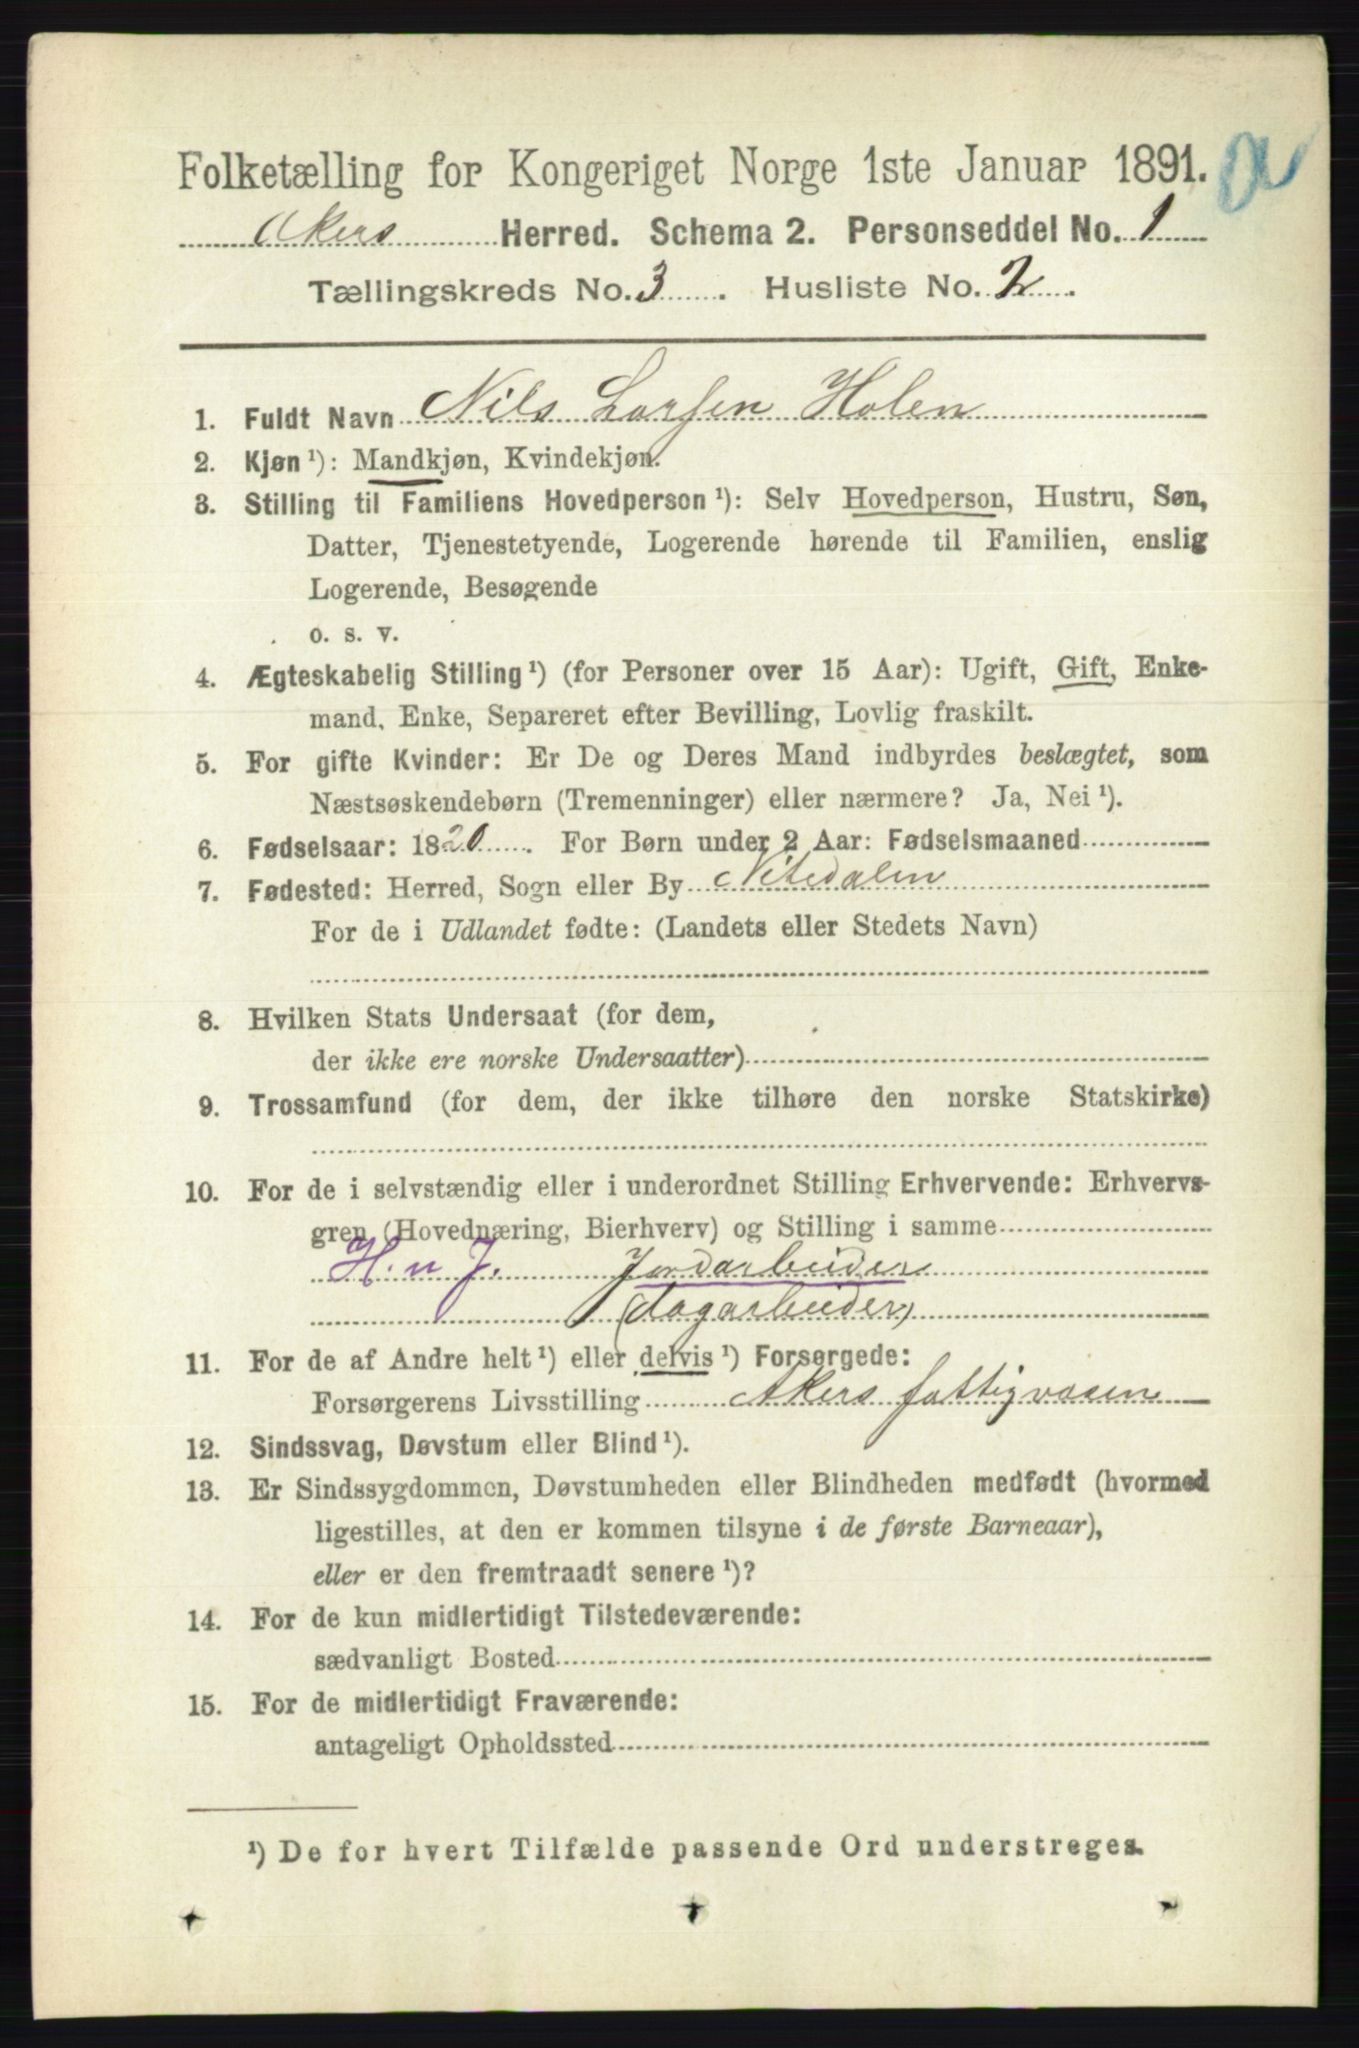 Folketælling for Kongeriget Norge 1ste Januar 1891.
Akers Herred. Schema 2. Personseddel No. 1
Tællingskreds No. 3. Husliste No. 2.
1. Fuldt Navn Nils Larsen Holen
2. Kjøn ¹): Mandkjøn, Kvindekjøn.
3. Stilling til Familiens Hovedperson ¹): Selv Hovedperson, Hustru, Søn,
Datter, Tjenestetyende, Logerende hørende til Familien, enslig
Logerende, Besøgende
o. s. v.
4. Ægteskabelig Stilling ¹) (for Personer over 15 Aar): Ugift, Gift, Enke-
mand, Enke, Separeret efter Bevilling, Lovlig fraskilt.
5. For gifte Kvinder: Er De og Deres Mand indbyrdes beslægtet, som
Næstsøskendebørn (Tremenninger) eller nærmere? Ja, Nei ¹).
6. Fødselsaar: 1820. For Børn under 2 Aar: Fødselsmaaned
7. Fødested: Herred, Sogn eller By Nitedalen
For de i Udlandet fødte: (Landets eller Stedets Navn)
8. Hvilken Stats Undersaat (for dem,
der ikke ere norske Undersaatter)
9. Trossamfund (for dem, der ikke tilhøre den norske Statskirke)
10. For de i selvstændig eller i underordnet Stilling Erhvervende: Erhvervs-
gren (Hovednæring, Bierhverv) og Stilling i samme
H. n J. Jordarbeider
(dagarbeider)
11. For de af Andre helt ¹) eller delvis ¹) Forsørgede:
Forsørgerens Livsstilling Akers fattigvæsen
12. Sindssvag, Døvstum eller Blind ¹).
13. Er Sindssygdommen, Døvstumheden eller Blindheden medfødt (hvormed
ligestilles, at den er kommen tilsyne i de første Barneaar),
eller er den fremtraadt senere ¹)?
14. For de kun midlertidigt Tilstedeværende:
sædvanligt Bosted
15. For de midlertidigt Fraværende:
antageligt Opholdssted
¹) De for hvert Tilfælde passende Ord understreges.